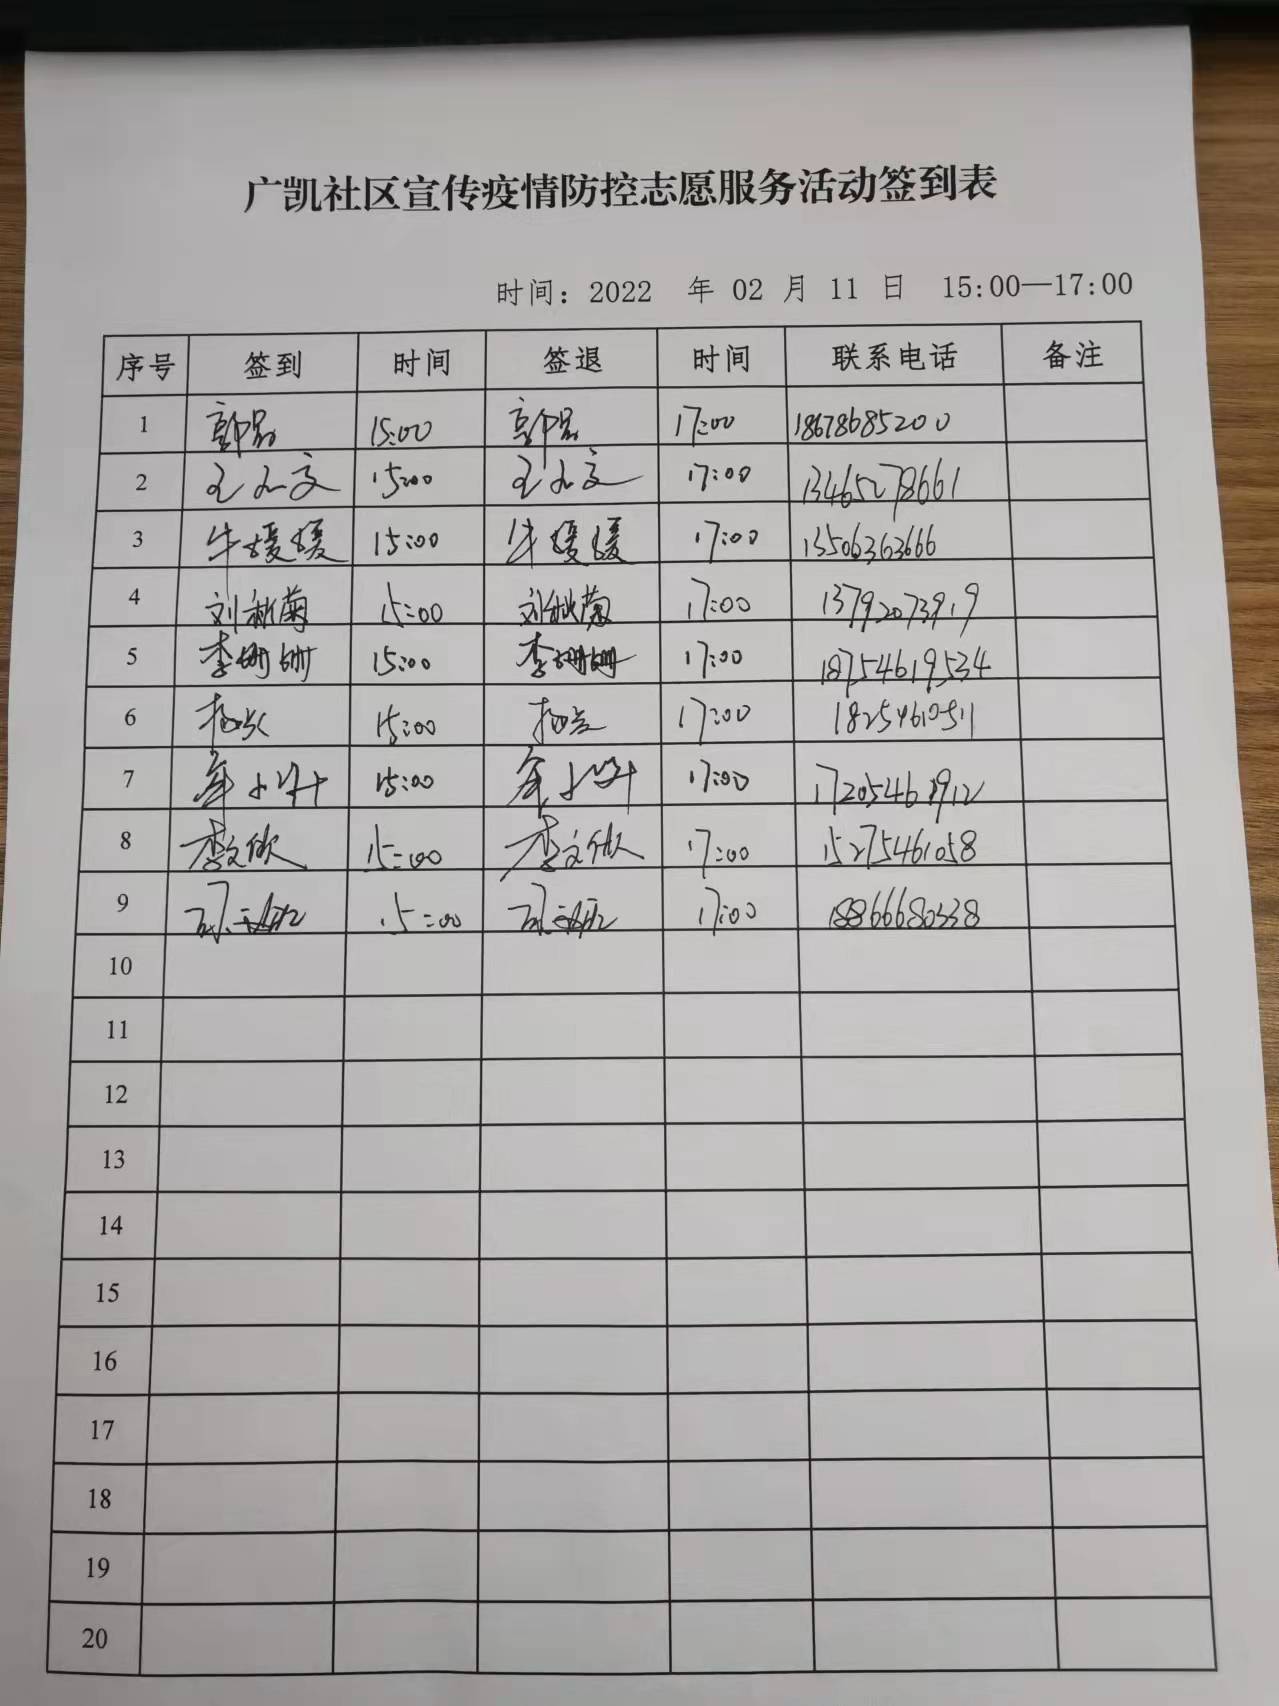 广凯社区宣传疫情防控志愿服务活动签到表
时间：2022 年 02 月 11 日 15:00—17:00
序号 签到 时间 签退 时间 联系电话 备注
1 15:00 17:00 18678685200
2 15:00 17:00 13465278661
3 牛媛媛 15:00 牛媛媛 17:00 13506363666
4 刘新菊 15:00 刘秋菊 17:00 13792073919
5 李姗姗 15:00 李姗姗 17:00 18754619534
6 15:00 17:00 18254610511
7 15:00 17:00 17205461912
8 李文欣 15:00 李文欣 17:00 15275461058
9 15:00 17:00 18866680538
10
11
12
13
14
15
16
17
18
19
20